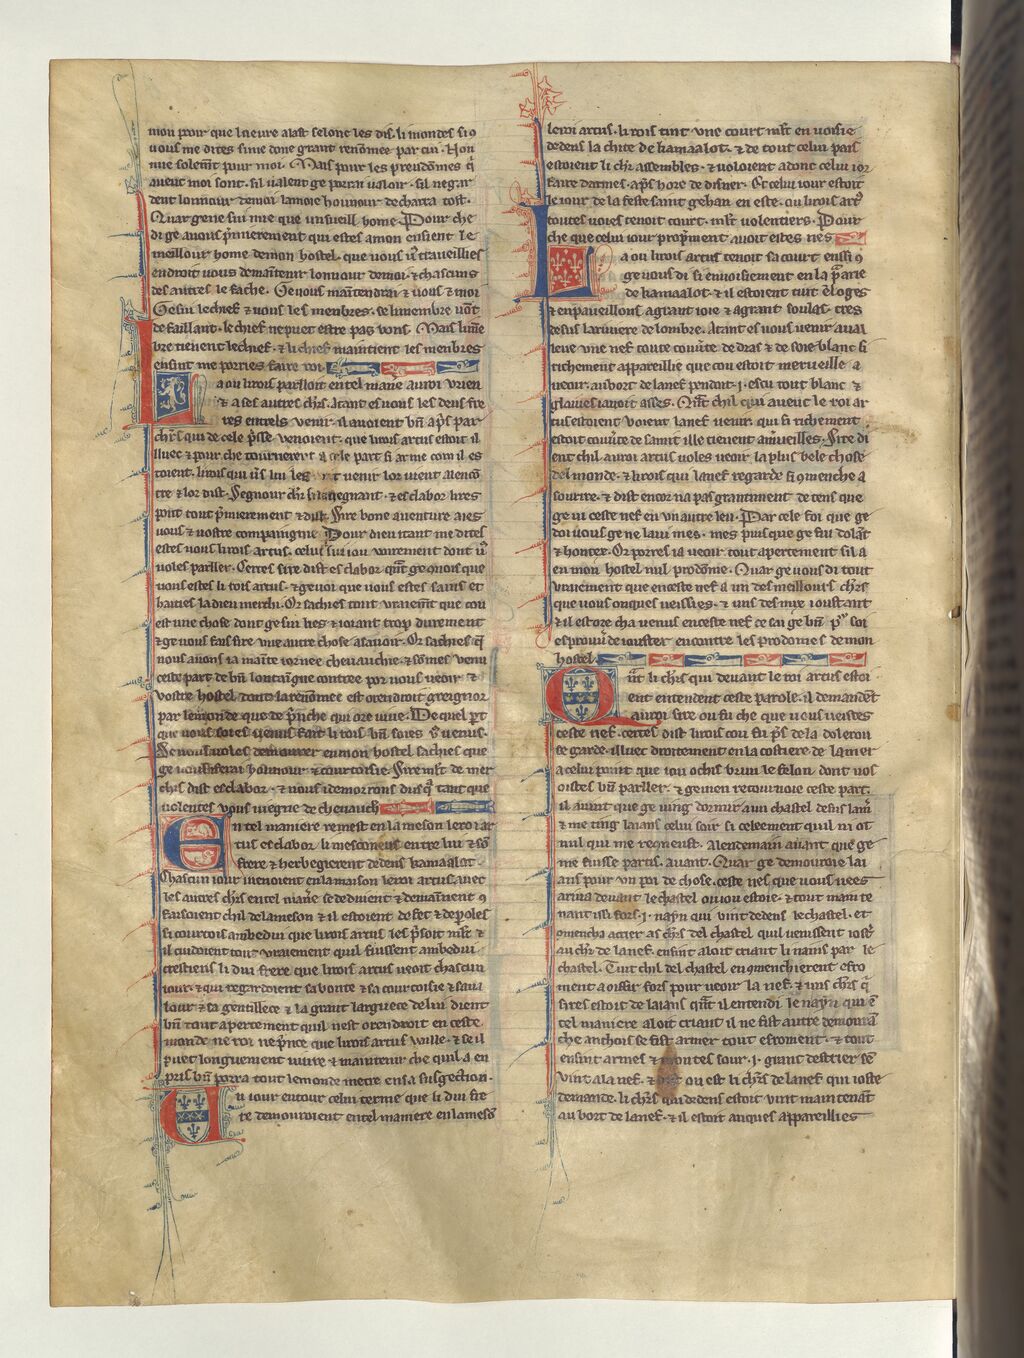 mon pooir que lneure alast selonc les dis. li mondes si 9
uous me dites si me done grant renomee par cui. Non
mie solemt pour moi. Mais pour les preudomes q̃
auent moi sont. sil ualent ge porrai ualoir. sil negar
dent lonnour demoi lamoie honnour decharra tost.
Quar gene sui mie que un sueill home. Pour che
di ge a uous p̃mierement qui estes a mon ensient le
meillour home demon hostel. que uous
endroit uous demaitenir lonnour demoi. & chascuns
des autres le fache. Ge uous maitendrai & uous & moi
Ge sui le chief & uous les menbres. se li menbre uõt
defaillant. le chief ne puet estre pas bons. Mais li mẽ
bre tienent le chief. & li chief maintient les menbres
ensint me porries faire roi
La ou li rois parlloit en tel maniẽ au roi urien
& a ses autres chr̃s. Atant es uous les deus fre
res entrels uenir. il auoient bñ ap̃s par
chr̃s qui de cele p̃sse uenoient. que li rois artus estoit il
lluec & pour che tournerent a cele part si arme com il es
toient. li rois qui uers lui les uenir lor uient alenco
tre & lor dist. Segnour chr̃ bienuegnant. & esclabor lires
pont tout p̃mierement & dist. Sire bone auenture aies
uous & uostre compaingnie Pour dieu itant me dites
estes uous li rois artus. celui sui iou uoirement dont u9
uoles parller. Certes sire dist esclabor qñt ge quois que
vous estes li rois artus. & ge uoi que uous estes sains et
haities la dieu merchi. Or sachies tout uraiemt que cou
est une chose dont ge sui lies & ioiant trop durement
& ge uous fais sire une autre chose asauoir. Or sachies q̃
nous auons ia mainte iornee cheuauchie. & somes uenu
ceste part de bñ lontaigne contree por uous ueoir &
vostre hostel dont la renomee est orendroit greignor
par le monde que de p̃nche qui ore uiue. De quel part
que uous soies uenus fait li rois bñ soies uenus.
Se uous uoles demourer en mon hostel sachies que
ge uous ferai honnour & courtoisie. Sire mlt de mer
chis dist esclabor. & nous i demorrons dusq̃ tant que
uolentes uous uiegne de cheuauch
En tel maniere remest en la meson le roi ar
tus esclabor li mesconeus entre lui & sõ
frere & herbegierent dedens kamaalot.
Chascun iour uenoient en la maison le roi artus auec
les autres chr̃s en tel manie se deduient & demainent 9
faisoient chil de la meson & il estoient de fet & de paroles
si courtois ambedui que li rois artus les p̃soit mlt &
il cuidoient tout uraiement quil fuissent ambedui
crestiens li dui frere que li rois artus ueoit chascun
iour. & qui regardoient sa bonte & sa courtoisie & sa ua
lour & sa gentillece & la grant larguece de lui dient
bñ tout apertement quil nest orendroit en ceste
monde ne roi ne p̃nce que li rois artus uaille. & se il
puet longuement uiure & maintenir che quil a en
pris bñ porra tout le monde metre en sa susgection.
Du iour entour celui terme que li dui fre
re demouroient en tel maniere en la meson
le roi artus. li rois tint une court mlt en uoisie
dedens la chite de kamaalot. & de tout celui pais
estoient li chr̃ assembles. & uoloient adont celui ior
faire darmes. ap̃s hore de disner. Et celui iour estoit
le iour de la feste saint gehan en este. ou li rois artus
toutes uoies tenoit court. mlt uolentiers. Pour
che que celui iour propment auoit estes nes
La ou li rois artus tenoit sa court enssi 9
ge uous di si enuoisiement en la praerie
de kamaalot. & il estoient tuit es loges
& en paueillons a grant ioie & a grant soulas. tres
desus la riuiere de lombre. Atant es uous uenir aual
leue une nef toute couute de dras & de soie blanc si
richement appareillie que cou estoit merueille a
ueoir. au bort de la nef pendoit .i. escu tout blanc &
glaiues i auoit asses. Qñt chil qui auec le roi ar
tus estoient uoient la nef uenir. qui si richement
estoit couute de samit il le tienent a merueilles. Sire di
ent chil au roi artus uoles ueoir la plus bele chose
del monde. & li rois qui la nef regarde si 9menche a
sourire. & dist encor na pas grantment de tens que
ge ui ceste nef en un autre leu. Par cele foi que ge
doi uous ge ne laui mes. mes puis que ge fui dolant
& hontex. Or porres ia ueoir tout apertement sil a
en mon hostel nul prodome. Quar ge uous di tout
uraiement que en ceste nef a un des meillours chr̃s
que uous onques ueissies. & uns des mix ioustant
& il est ore cha uenus en ceste nef ce sai ge bñ por soi
esprouuer de iouster encontre les prodomes de mon
hostel.
Qñt li chr̃s qui deuant le roi artus estoi
ent entendent ceste parole. il demandent
au roi sire ou fu che que uous ueistes
ceste nef. certes dist li rois cou fu p̃s de la doleron
se garde. illuec droitement en la costiere de la mer
a celui point que iou ochis brun le felon dont uos
oistes bñ parller. & ge men recournoie ceste part.
il auint que ge uing dormir a un chastel desus la mer
& me ting laians celui soir si celeement quil ni ot
nul qui me reconeust. A lendemain auant que ge
me fuisse partis. auant. Quar ge demouroie lai
ans pour un poi de chose. ceste nes que uous uees
ariua deuant le chastel ou iou estoie. & tout mainte
nant issi fors .i. nayn qui uint dedens le chastel. et
9mencha a crier as chr̃s del chastel quil uenissent iost
au chr̃ de la nef. ensint aloit criant li nains par le
chastel. Tuit chil del chastel en 9menchierent estroi
ment a oissir fors pour ueoir la nef. & uns chr̃s q̃
sires estoit de laians qñt il entendi le nayn qui en
tel maniere aloit criant il ne fist autre demouran
che anchois se fist armer tout esroment. & tout
ensint armes & montes sour .i. grant destrier sen
vint a la nef. & dist ou est li chr̃s de la nef qui ioste
demande. li chr̃s qui dedens estoit uint maintenãt
au bort de la nef. & il estoit auques appareillies